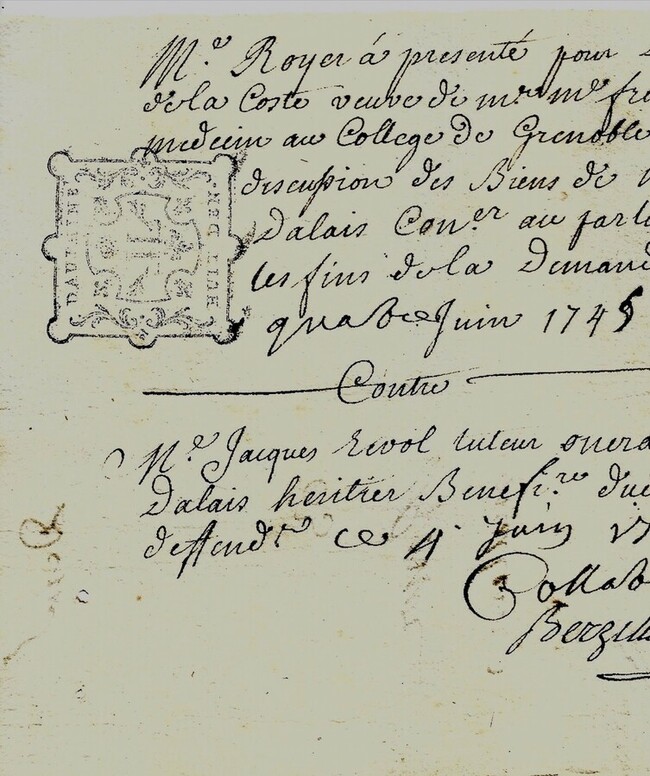 M.e Royer á presenté pour
de la Coste veuve de mr. me fre
medecin au College de Grenoble
discussion des Biens de
Dalais Con.er au parle
les fins de la Demand
quatre Juin 1745
Contre
M.e Jacques Revol tuteur onera
Dalais heritier Benefi.re du
deffend.r ce 4 Juin 17
Collab
DAUPHINÉ
HUIT DEN.